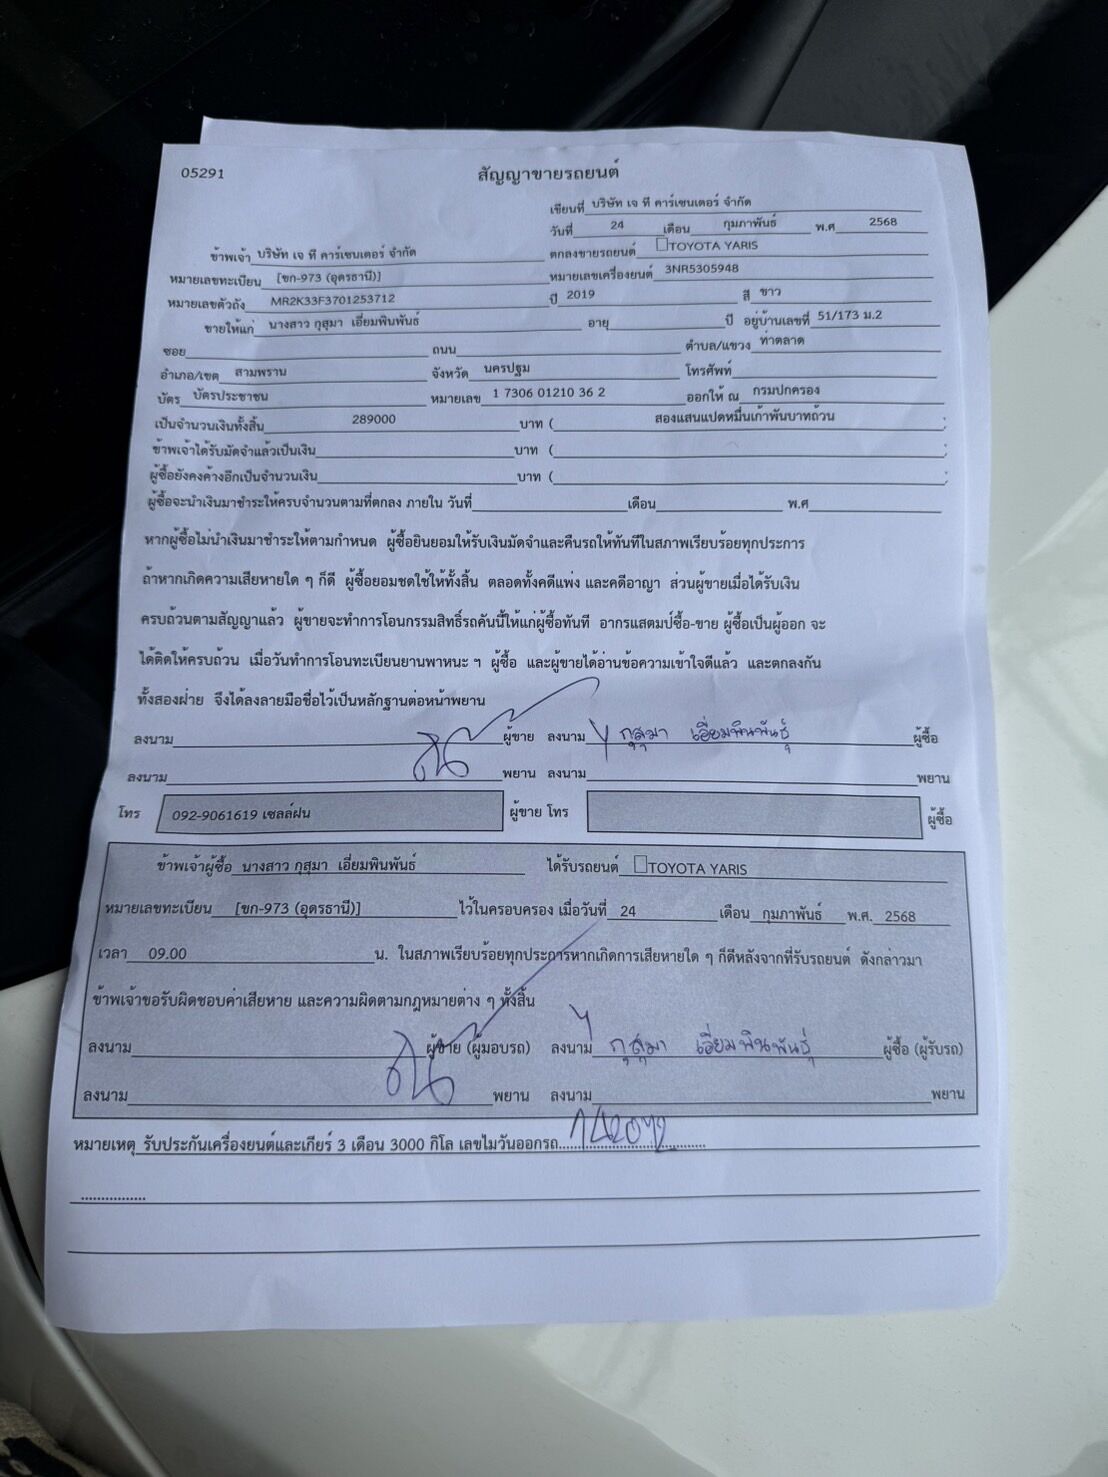 05291
สัญญาขายรถยนต์
เขียนที่ บริษัท เจ ที คาร์เซนเตอร์ จำกัด
วันที่ 24 เดือน กุมภาพันธ์ พ.ศ 2568
ข้าพเจ้า บริษัท เจ ที คาร์เซนเตอร์ จำกัด ตกลงขายรถยนต์ TOYOTA YARIS
หมายเลขทะเบียน [ขก-973 (อุดรธานี)] หมายเลขเครื่องยนต์ 3NR5305948
หมายเลขตัวถัง MR2K33F3701253712 ปี 2019 สี ขาว
ขายให้แก่ นางสาว กุสุมา เอี่ยมพินพันธ์ อายุ ปี อยู่บ้านเลขที่ 51/173 ม.2
ซอย ถนน ตำบล/แขวง ท่าตลาด
อำเภอ/เขต สามพราน จังหวัด นครปฐม โทรศัพท์
บัตร บัตรประชาชน หมายเลข 1 7306 01210 36 2 ออกให้ ณ กรมปกครอง
เป็นจำนวนเงินทั้งสิ้น 289000 บาท ( สองแสนแปดหมื่นเก้าพันบาทถ้วน
ข้าพเจ้าได้รับมัดจำแล้วเป็นเงิน บาท (
ผู้ซื้อยังคงค้างอีกเป็นจำนวนเงิน บาท (
ผู้ซื้อจะนำเงินมาชำระให้ครบจำนวนตามที่ตกลง ภายใน วันที่ เดือน พ.ศ
หากผู้ซื้อไม่นำเงินมาชำระให้ตามกำหนด ผู้ซื้อยินยอมให้รับเงินมัดจำและคืนรถให้ทันทีในสภาพเรียบร้อยทุกประการ
ถ้าหากเกิดความเสียหายใด ๆ ก็ดี ผู้ซื้อยอมชดใช้ให้ทั้งสิ้น ตลอดทั้งคดีแพ่ง และคดีอาญา ส่วนผู้ขายเมื่อได้รับเงิน
ครบถ้วนตามสัญญาแล้ว ผู้ขายจะทำการโอนกรรมสิทธิ์รถคันนี้ให้แก่ผู้ซื้อทันที อากรแสตมป์ซื้อ-ขาย ผู้ซื้อเป็นผู้ออก จะ
ได้ติดให้ครบถ้วน เมื่อวันทำการโอนทะเบียนยานพาหนะ ฯ ผู้ซื้อ และผู้ขายได้อ่านข้อความเข้าใจดีแล้ว และตกลงกัน
ทั้งสองฝ่าย จึงได้ลงลายมือชื่อไว้เป็นหลักฐานต่อหน้าพยาน
ลงนาม ผู้ขาย ลงนาม กุสุมา เอี่ยมพินพันธุ์ ผู้ซื้อ
ลงนาม พยาน ลงนาม พยาน
โทร 092-9061619 เซลล์ฝน ผู้ขาย โทร ผู้ซื้อ
ข้าพเจ้าผู้ซื้อ นางสาว กุสุมา เอี่ยมพินพันธ์ ได้รับรถยนต์ TOYOTA YARIS
หมายเลขทะเบียน [ขก-973 (อุดรธานี)] ไว้ในครอบครอง เมื่อวันที่ 24 เดือน กุมภาพันธ์ พ.ศ. 2568
เวลา 09.00 น. ในสภาพเรียบร้อยทุกประการหากเกิดการเสียหายใด ๆ ก็ดีหลังจากที่รับรถยนต์ ดังกล่าวมา
ข้าพเจ้าขอรับผิดชอบค่าเสียหาย และความผิดตามกฎหมายต่าง ๆ ทั้งสิ้น
ลงนาม ผู้ขาย (ผู้มอบรถ) ลงนาม กุสุมา เอี่ยมพินพันธุ์ ผู้ซื้อ (ผู้รับรถ)
ลงนาม พยาน ลงนาม พยาน
หมายเหตุ รับประกันเครื่องยนต์และเกียร์ 3 เดือน 3000 กิโล เลขไมวันออกรถ